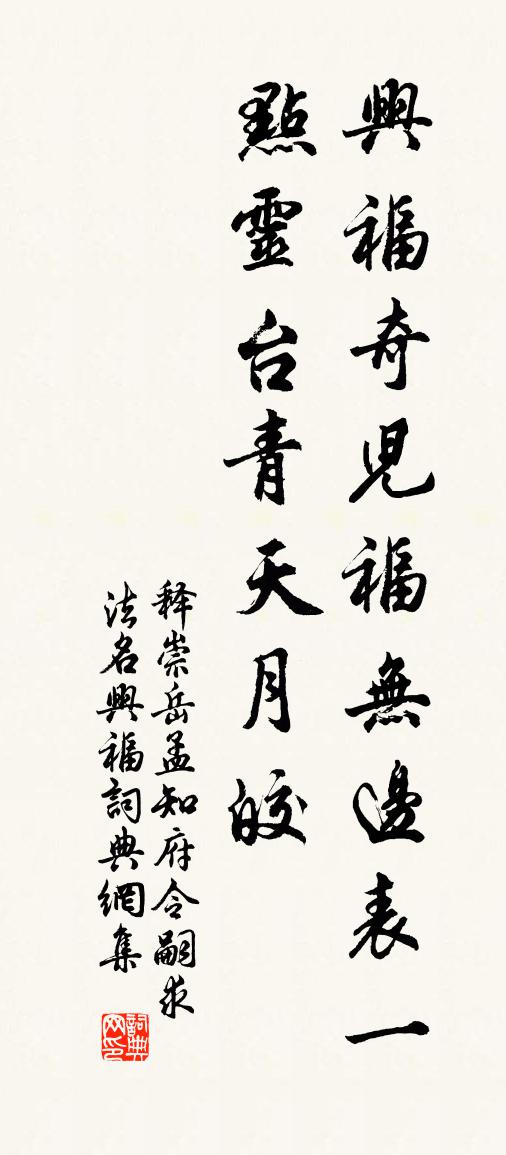 興福奇児福無邊表一
點靈台青天月皎
释崇岳孟知府令嗣求
法名興福詞典網集
詞典
网印